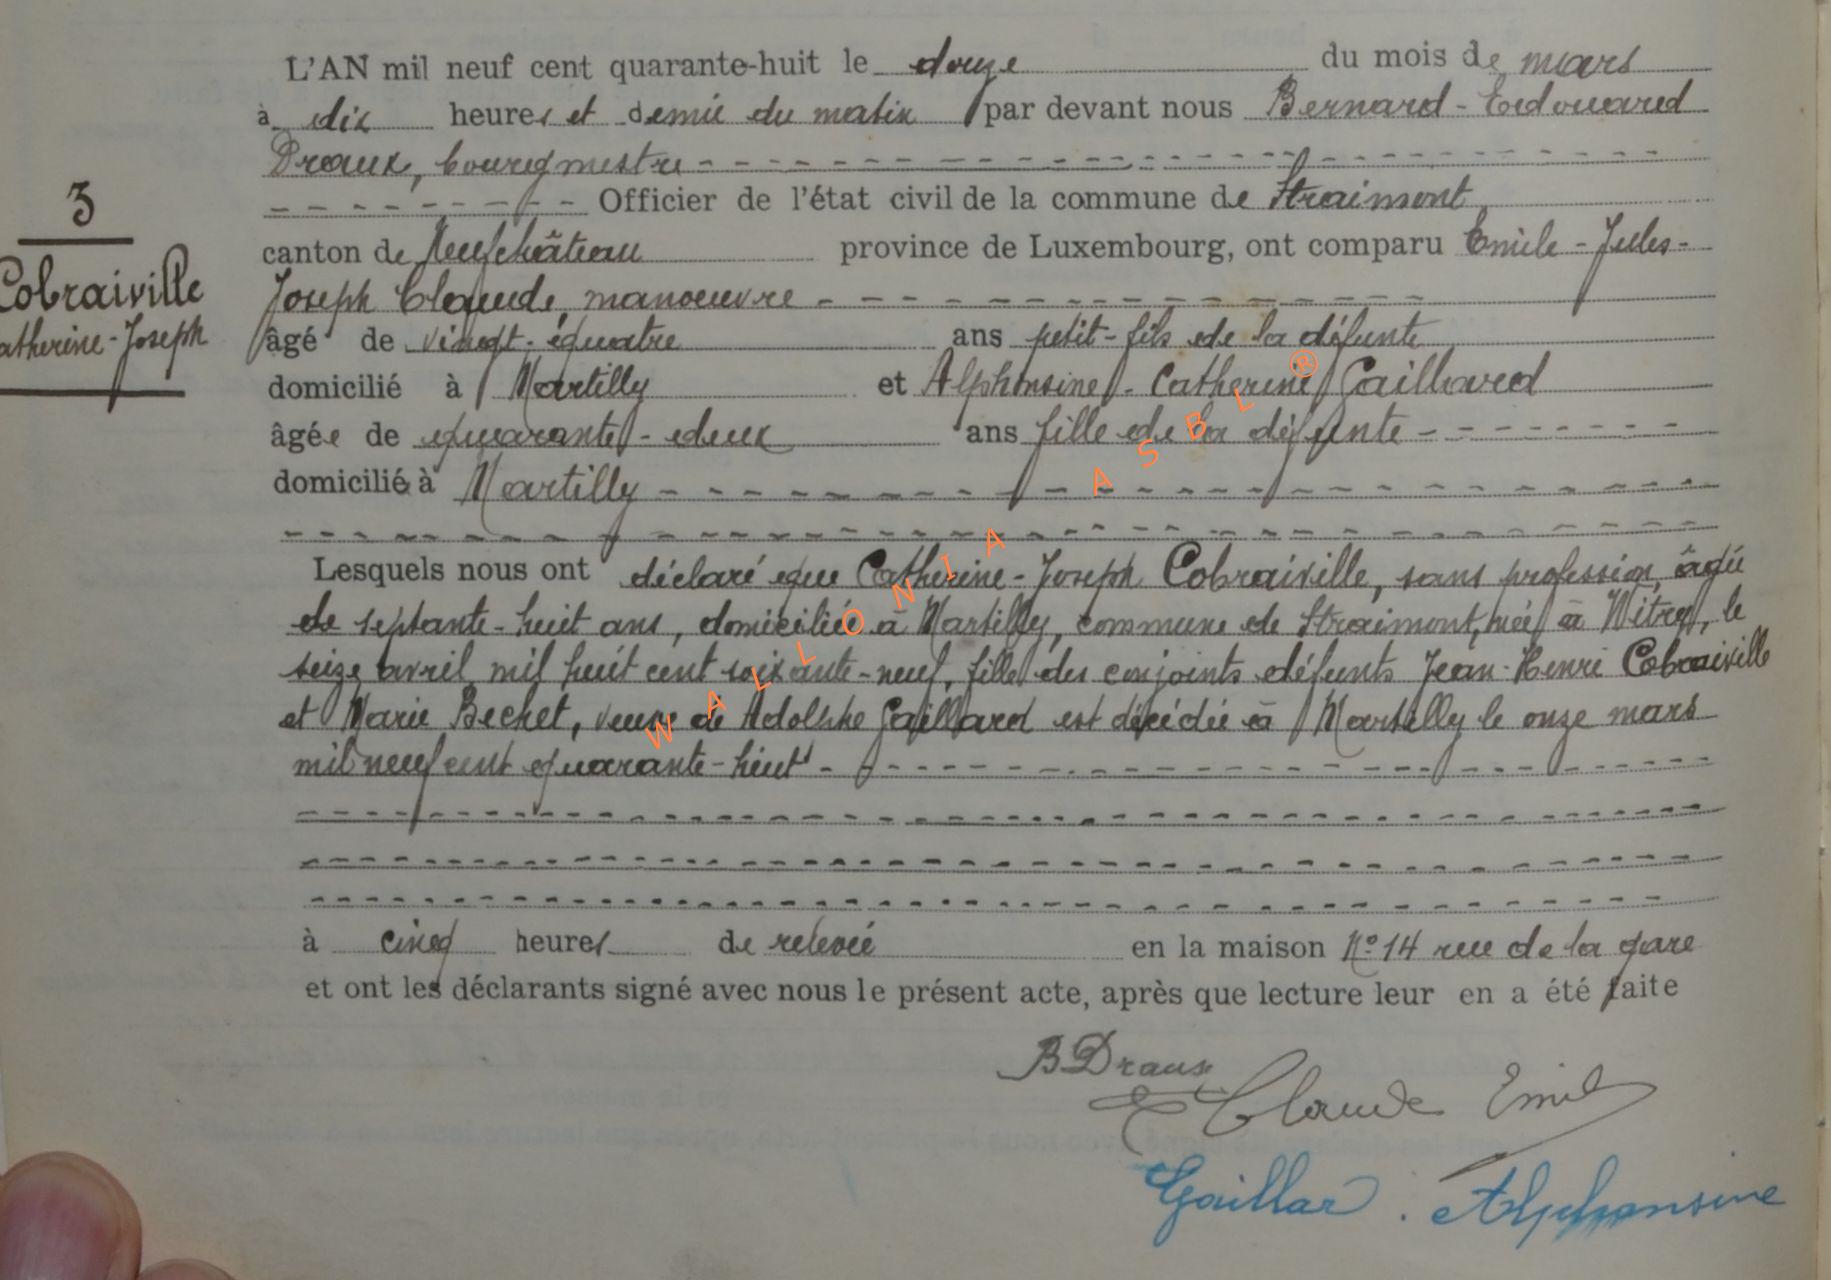 L'AN mil neuf cent quarante-huit le douze du mois de mars
à dix heures et demie du matin par devant nous Bernard-Edouard
Draux, bourgmestre
Officier de l'état civil de la commune de Straimont
3
canton de Neufchâteau province de Luxembourg, ont comparu Emile-Jules-
Cobraiville
Joseph Claude, manoeuvre
atherine-Joseph
âgé de vingt-quatre ans petit-fils de la défunte
domicilié à Martilly et Alphonsine-Catherine Gaillard
âgée de quarante-deux ans fille de la défunte
domicilié à Martilly
Lesquels nous ont déclaré que Catherine-Joseph Cobraiville, sans profession, âgée
de septante-huit ans, domiciliée à Martilly, commune de Straimont, née à Witry, le
seize avril mil huit cent soixante-neuf, fille des conjoints défunts Jean-Henri Cobraiville
et Marie Bechet, veuve de Adolphe Gaillard est décédée à Martilly le onze mars
mil neuf cent quarante-huit
à cinq heures de relevée en la maison N° 14 rue de la gare
et ont les déclarants signé avec nous le présent acte, après que lecture leur en a été faite
B Draux
Claude Emile
Gaillar. Alphonsine
WALLONIA ASBL ®